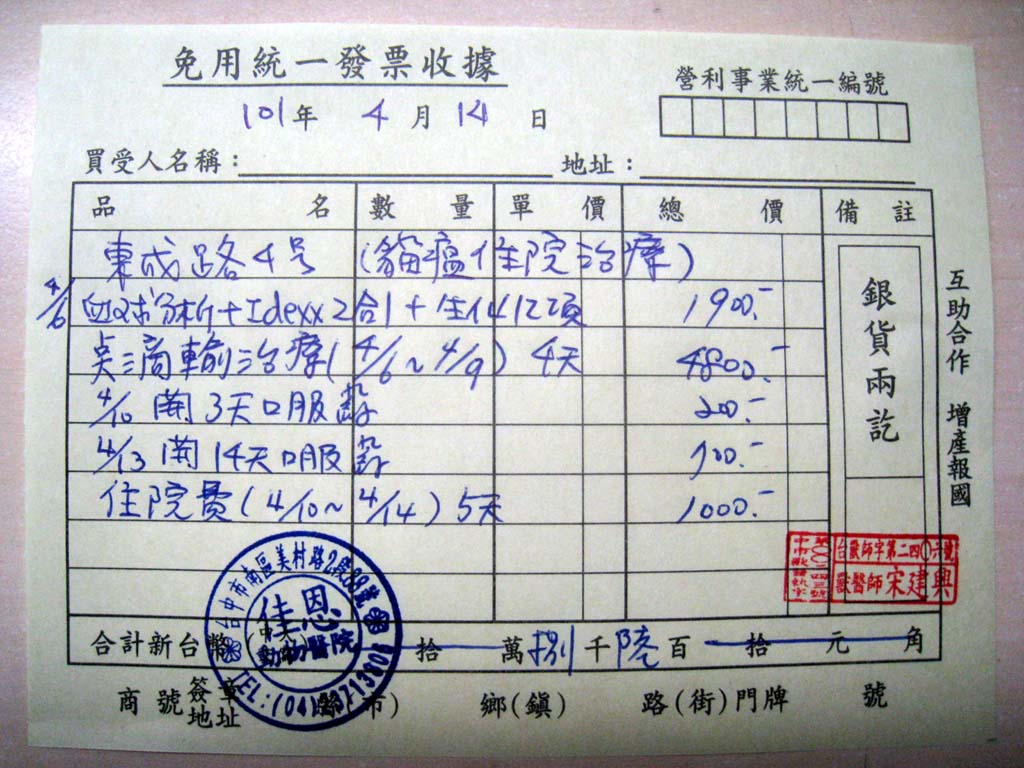 免用統一發票收據
營利事業統一編號
101年 4月 14日
買受人名稱： 地址：
品名 數量 單價 總價 備註
東成路4号 (貓瘟住院治療)
4/6 血球分析+Idexx2合1+生化12項 1900.-
点滴輸治療(4/6~4/9) 4天 4800.-
4/10 開3天口服 200.-
4/13 開14天口服 700.-
住院費(4/10~4/14) 5天 1000.-
銀貨兩訖
互助合作 增產報國
台獸師字第二四〇六號
獸醫師 宋建興
合計新台幣 拾 萬 捌 千 陸 百 拾 元 角
台中市南區美村路2段
佳恩
動物醫院
TEL:(04)
商號 簽章 地址 (市) 鄉(鎮) 路(街)門牌 號